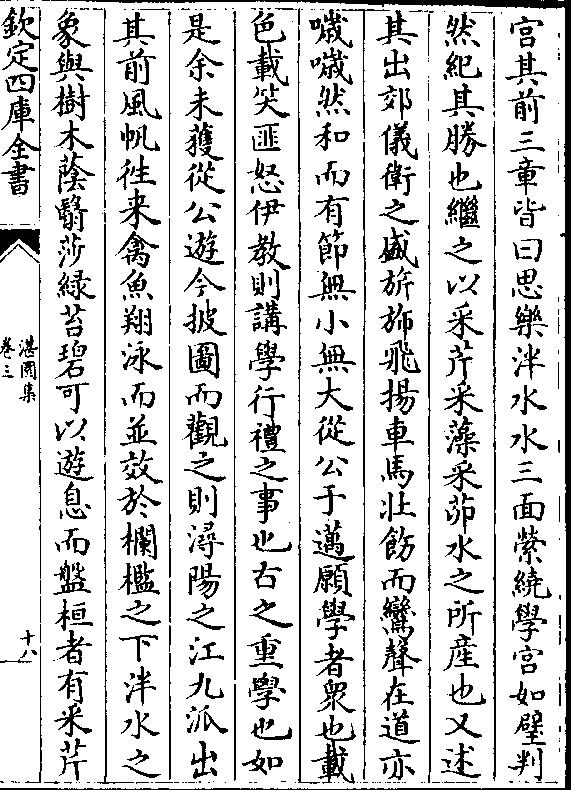 宫其前三章皆曰思樂泮水水三面縈繞學宫如璧判
然紀其勝也繼之以采芹采藻采茆水之所産也又述
其出郊儀衛之盛旂斾飛揚車馬壯飭而鸞聲在道亦
噦噦然和而有節無小無大從公于邁願學者衆也載
色載笑匪怒伊教則講學行禮之事也古之重學也如
是余未獲從公遊今披圖而觀之則潯陽之江九派出
其前風帆徃来禽魚翔泳而並效於欄檻之下泮水之
象與樹木蔭翳莎緑苔碧可以遊息而盤桓者有采芹
欽定四庫全書
湛園集
卷三
十八